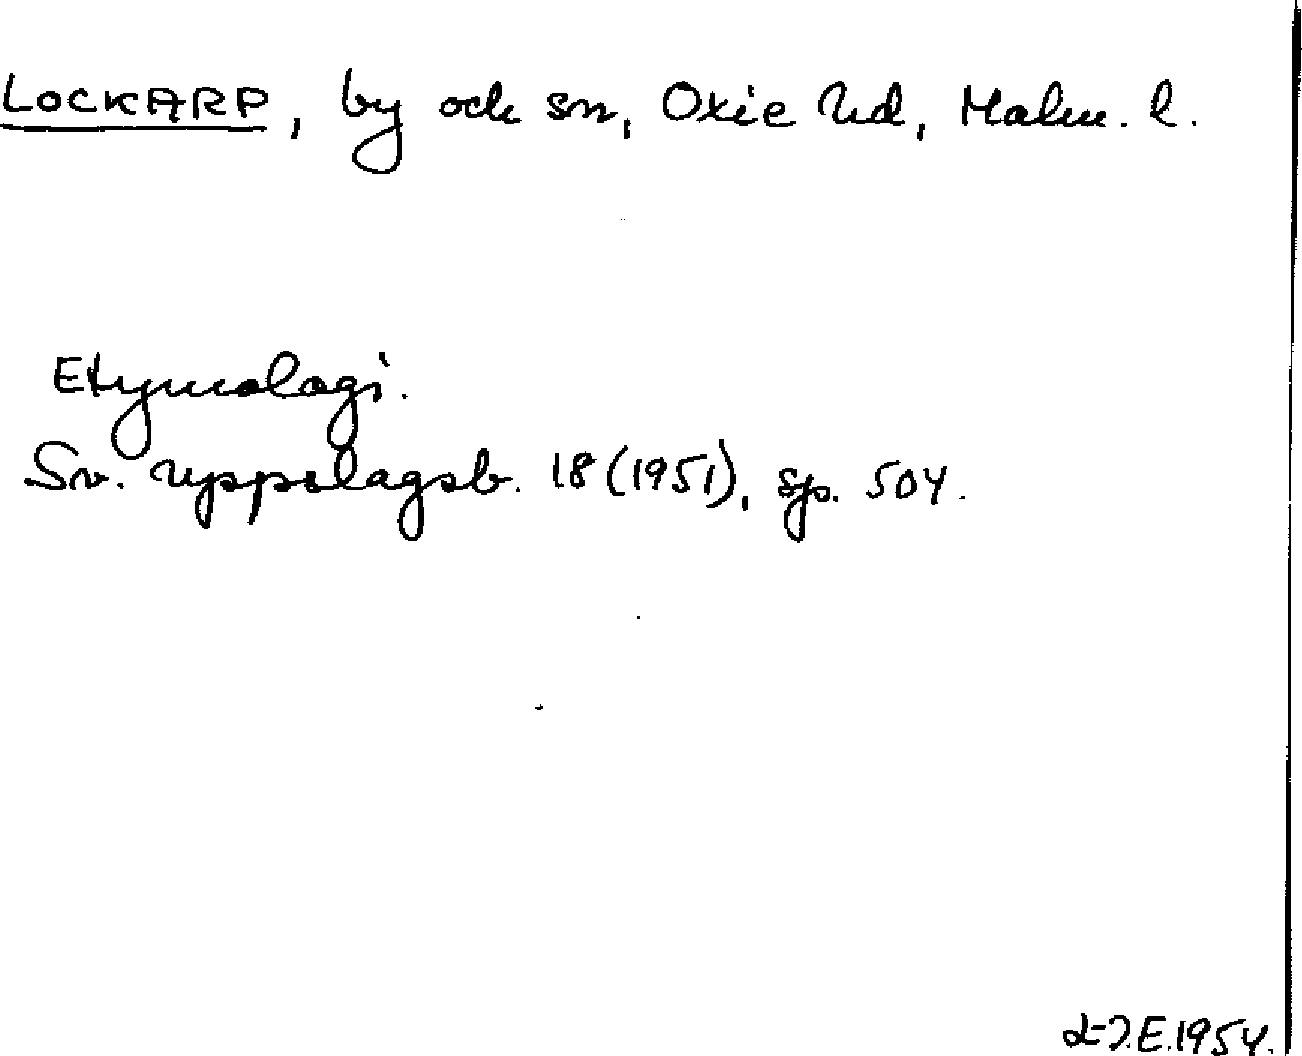 LOCKARP, by och sn, Oxie hd, Malm. l.
Etymologi.
Sv. uppslagsb. 18 (1951), sp. 504.
E. 1954.